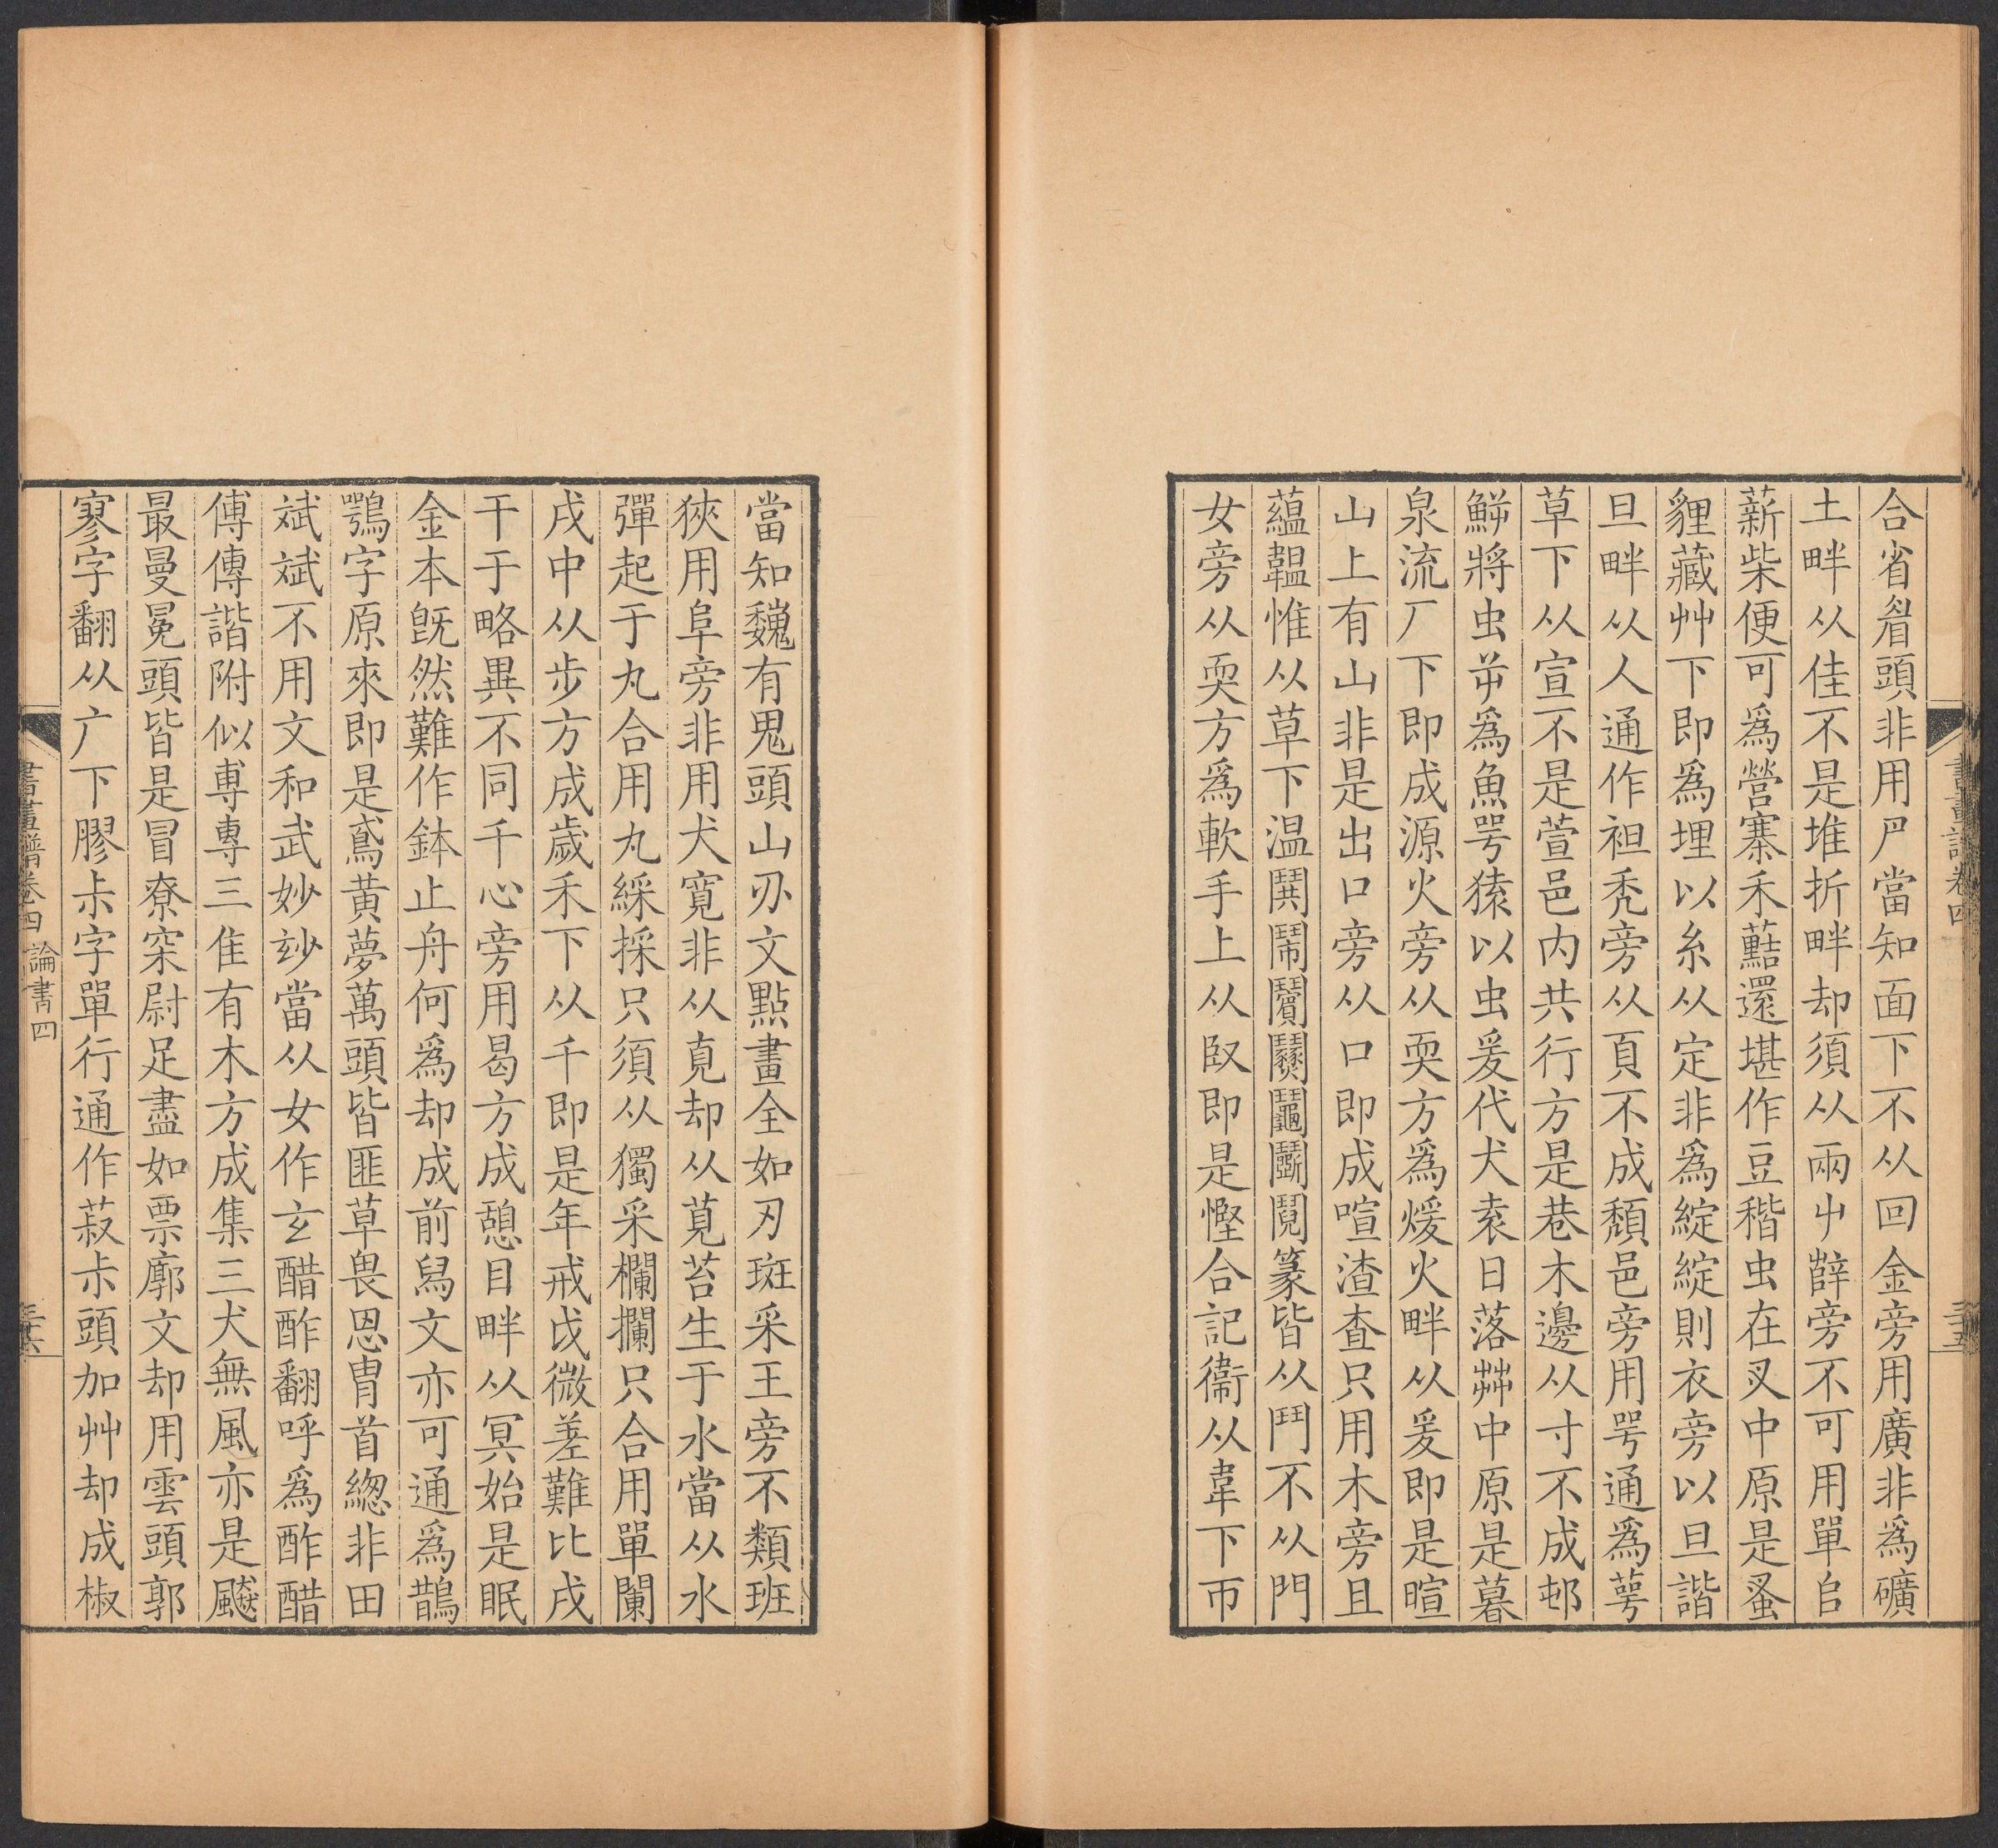 合省眉頭非用尸當知面下不从回金旁用廣非爲礦
土畔从佳不是堆折畔却須从兩屮辥旁不可用單㠯
薪柴便可爲營寨禾蘸還堪作豆稭虫在叉中原是蚤
貍藏艸下即爲埋以糸从定非爲綻綻則衣旁以旦諧
旦畔从人通作袒秃旁从頁不成頽邑旁用咢通爲萼
草下从宣不是萱邑内共行方是巷木邊从寸不成邨
鮮將虫䒑爲魚咢猿以虫爰代犬袁日落茻中原是暮
泉流厂下即成源火旁从耎方爲煖火畔从爰即是暄
山上有山非是出口旁从口即成喧渣查只用木旁且
蘊韞惟从草下温鬨鬧鬢鬩篆皆从鬥不从門
女旁从耎方爲軟手上从臤即是慳合記衞从韋下帀
書畫譜卷四
三十五
當知魏有鬼頭山刅文點畫全如刃斑采王旁不類班
狹用阜旁非用犬寬非从莧却从萈苔生于水當从水
彈起于丸合用丸綵採只須从獨采欄攔只合用單闌
戌中从步方成歲禾下从千即是年戒戉微差難比戌
干于略異不同千心旁用曷方成憩目畔从冥始是眠
金本旣然難作鉢止舟何爲却成前舄文亦可通爲鵲
鶚字原來即是鳶黃夢萬頭皆匪草畏恩冑首緫非田
斌斌不用文和武妙玅當从女作玄醋酢翻呼爲酢醋
傅傳諧附似尃專三隹有木方成集三犬無風亦是飇
最曼冕頭皆是冒尞宷尉足盡如票廓文却用雲頭郭
寥字翻从广下膠尗字單行通作菽尗頭加艸却成椒
書畫譜卷四 論書四
三十六